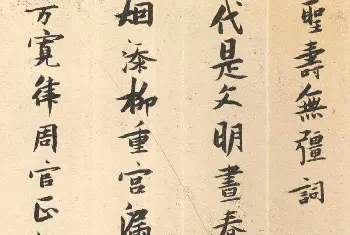 聖壽無疆詞
代是文明晝春
烟添柳重宮漏
万寬律周官正